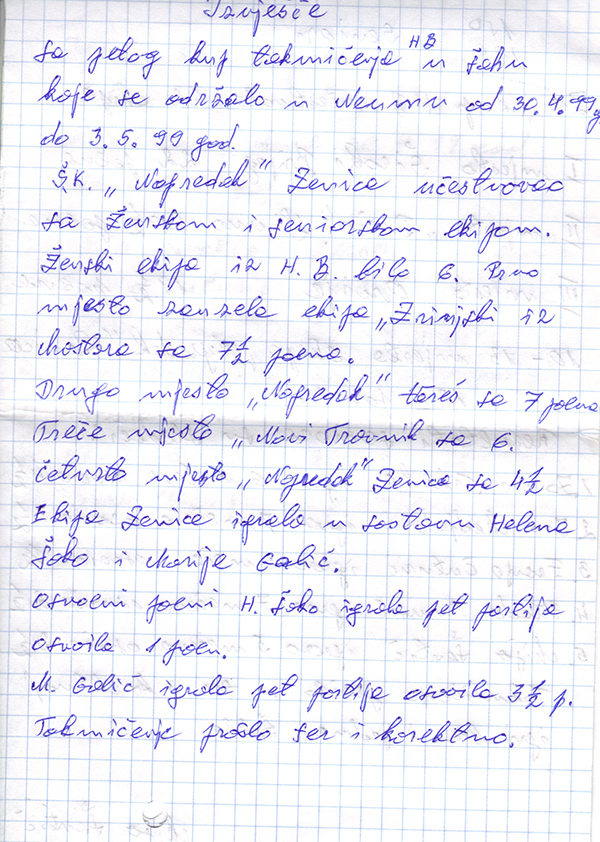 Izvješće
sa petog kup takmičenja HB u šahu
koje se održalo u Neumu od 30.4.99g
do 3.5.99 god.
Š.K. „Napredak" Zenica učestvovao
sa ženskom i seniorskom ekipom.
Ženski ekipa iz H.B. bilo 6. Prvo
mjesto zauzela ekipa „Zrinjski iz
Mostara sa 7 1/2 poena.
Drugo mjesto „Napredak" sa 7 poena
Treće mjesto „Novi Travnik sa 6.
četvrto mjesto „Napredak" Zenica sa 4 1/2
Ekipa Zenice igrala u sastavu Helena
Šoko i Marija Galić.
Osvoeni poeni H. Šoko igrala pet partija
osvoila 1 poen.
M. Galić igrala pet partija osvoila 3 1/2 p.
Takmičenje prošlo fer i korektno.